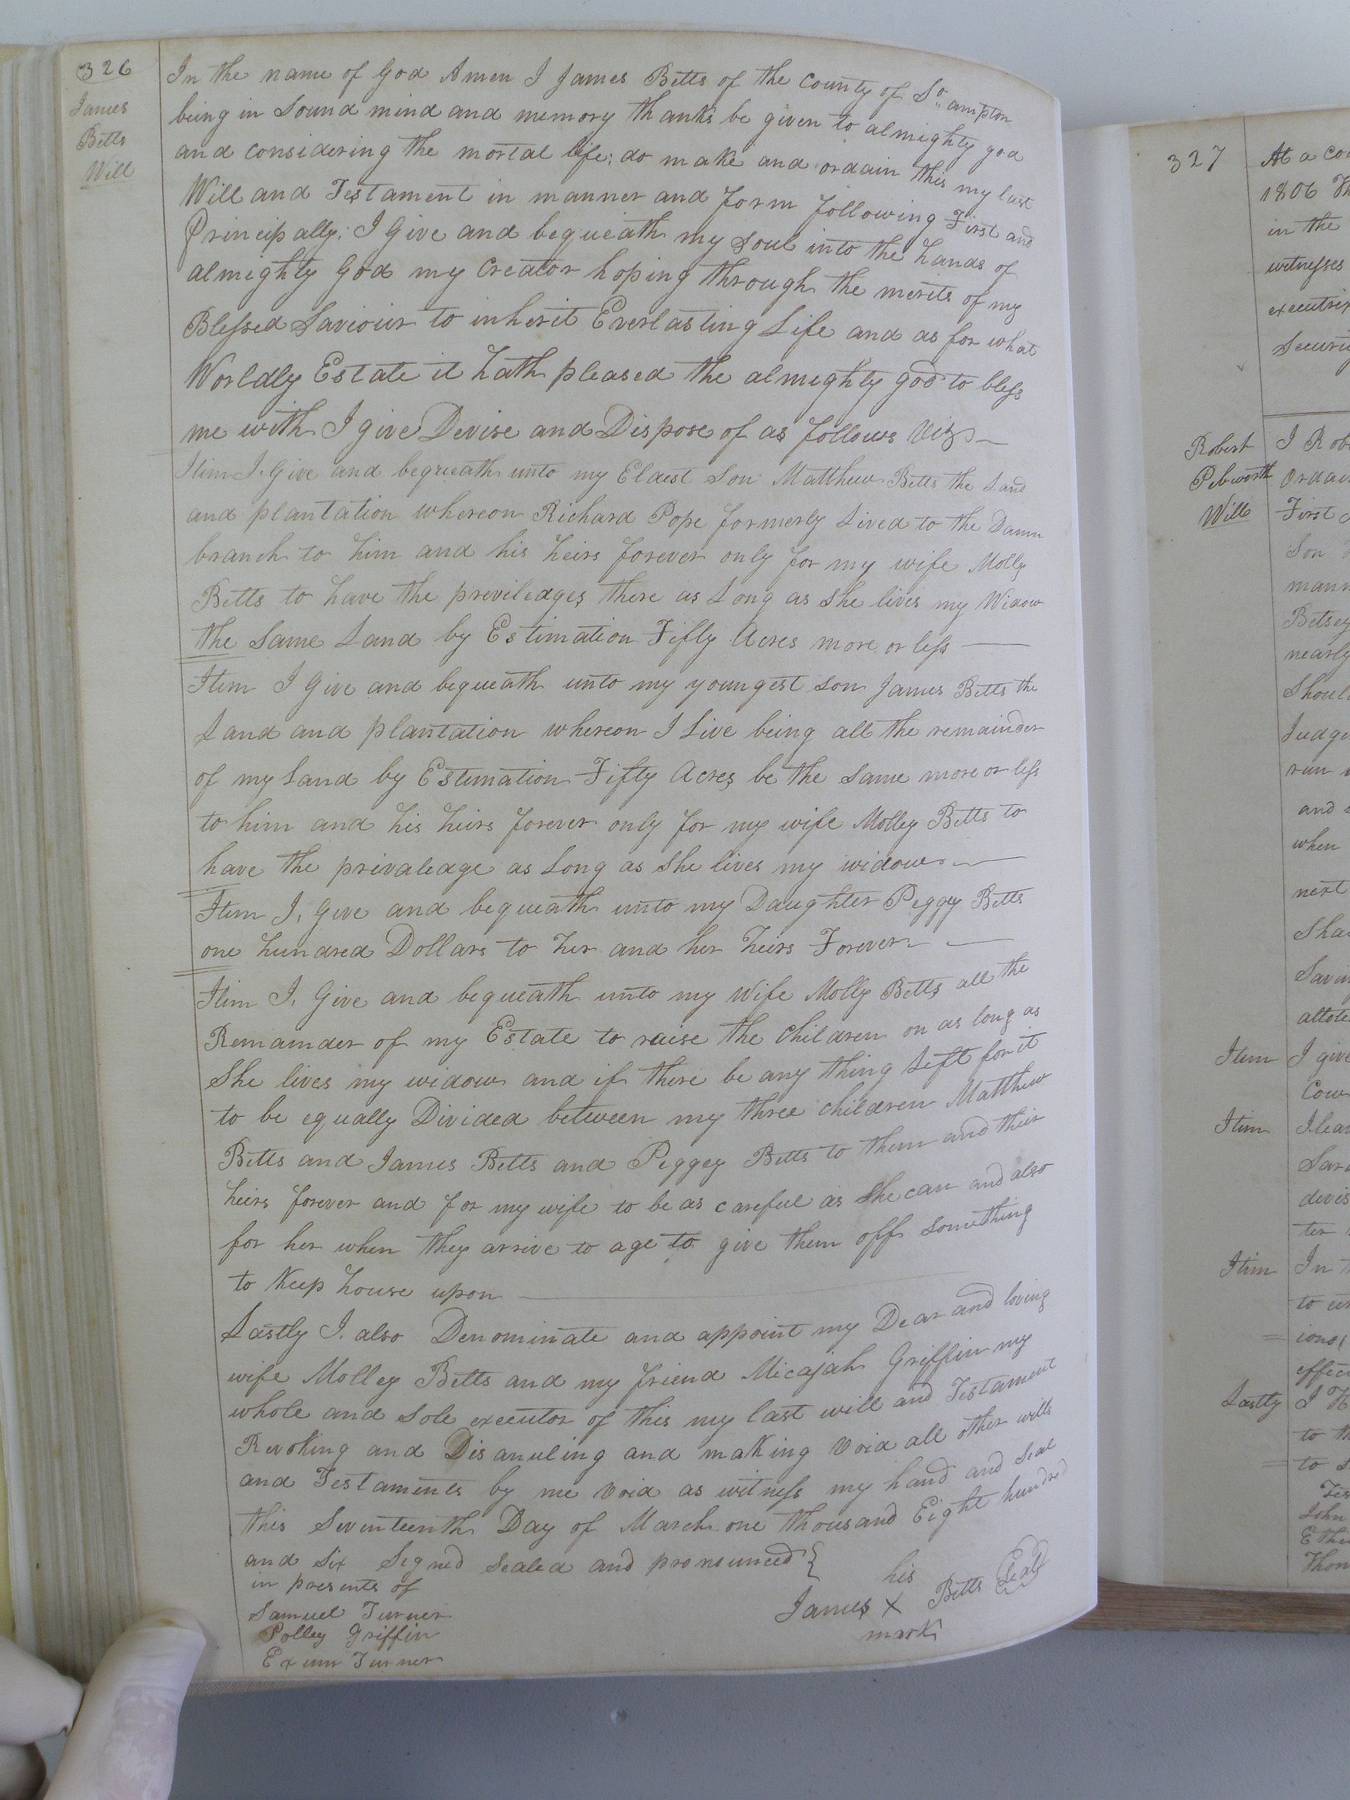 326
James
Betts
Will
In the name of God Amen I James Betts of the County of So.ampton
being in Sound mind and memory thanks be given to almighty god
and considering the mortal life; do make and ordain this my last
Will and Testament in manner and form following First and
Principally; I Give and bequeath my Soul into the hands of
almighty God my Creator hoping through the merits of my
Blessed Saviour to inherit Everlasting Life and as for what
Worldly Estate it hath pleased the almighty god to bless
me with I give Devise and Dispose of as follows Viz
Item I. Give and bequeath unto my Eldest Son Matthew Betts the Land
and plantation whereon Richard Pope formerly Lived to the Damn
branch to him and his heirs forever only for my wife Molly
Betts to have the previledges there as Long as she lives my Widow
the Same Land by Estimation Fifty Acres more or less
Item I Give and bequeath unto my youngest son James Betts the
Land and plantation whereon I Live being all the remainder
of my Land by Estimation Fifty Acres be the Same more or less
to him and his heirs forever only for my wife Molley Betts to
have the privaledge as Long as She lives my widow
Item I. Give and bequeath unto my Daughter Peggy Betts
one hundred Dollars to her and her heirs Forever
Item I. Give and bequeath unto my Wife Molly Betts all the
Remainder of my Estate to raise the Children on as long as
She lives my widow and if there be any thing Left for it
to be equally Divided between my three children Matthew
Betts and James Betts and Peggey Betts to them and their
heirs forever and for my wife to be as careful as She can and also
for her when they arrive to age to give them off Something
to Keep house upon
Lastly I. also Denominate and appoint my Dear and loving
wife Molley Betts and my friend Micajah Griffin my
whole and Sole executor of this my last will and Testament
Revoking and Disanuling and making Void all other wills
and Testaments by me Void as witness my hand and Seal
this Seventeenth Day of March one thousand Eight hundred
and Six Signed Sealed and pronounced
in presents of
Samuel Turner
Polley Griffin
Exum Turner
his
James X Betts Seal
mark
327
At a
1806
in the
witnesses
Robert
Pebworth
Will
I
First
Son
Betsey
nearly
run
and
when
next
Item
I give
Item
Item
In
to
Lastly
I
to
to
John